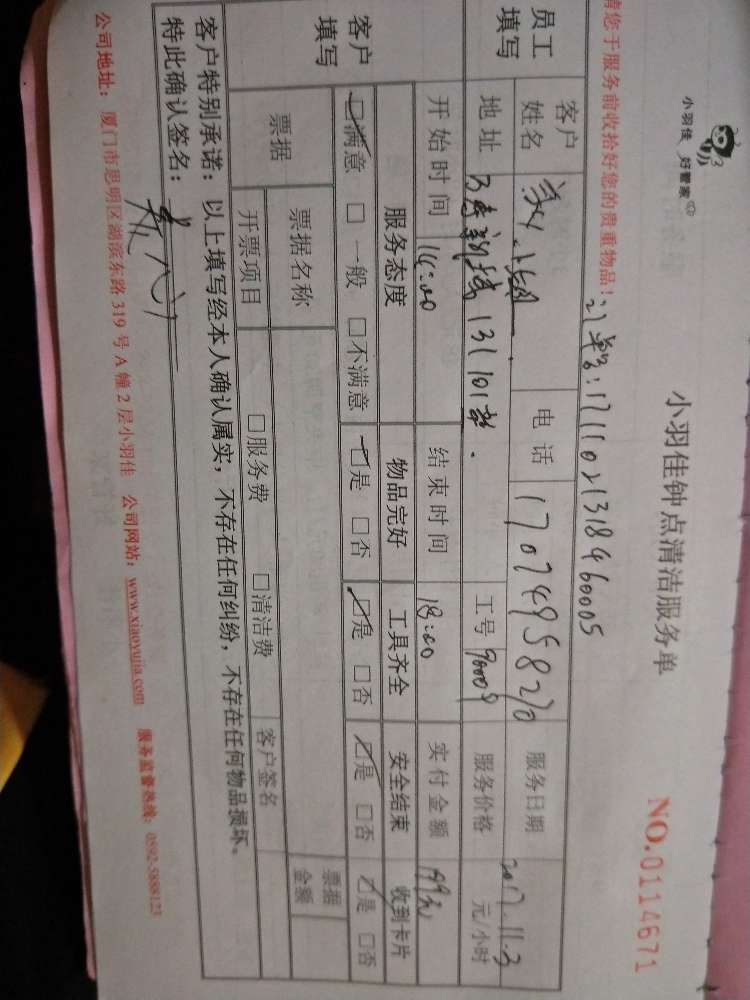 小羽佳 好管家
小羽佳钟点清洁服务单
NO.0114671
请您于服务前收拾好您的贵重物品!
订单号:1711021318460005
员工填写
客户姓名 电话 17074958210 服务日期 2017.11.3
地址 131 101室. 工号 90009 服务价格 元/小时
开始时间 14:00 结束时间 18:00 实付金额 199元
客户填写
服务态度 物品完好 工具齐全 安全结束 收到卡片
☑满意 □一般 □不满意 ☑是 □否 ☑是 □否 ☑是 □否 ☑是 □否
票据 票据名称 客户签名 票据金额
开票项目 □服务费 □清洁费
客户特别承诺:以上填写经本人确认属实,不存在任何纠纷,不存在任何物品损坏。
特此确认签名:
公司地址:厦门市思明区湖滨东路 319 号 A 幢 2 层小羽佳 公司网站:www.xiaoyujia.com 服务监督热线:0592-5888123